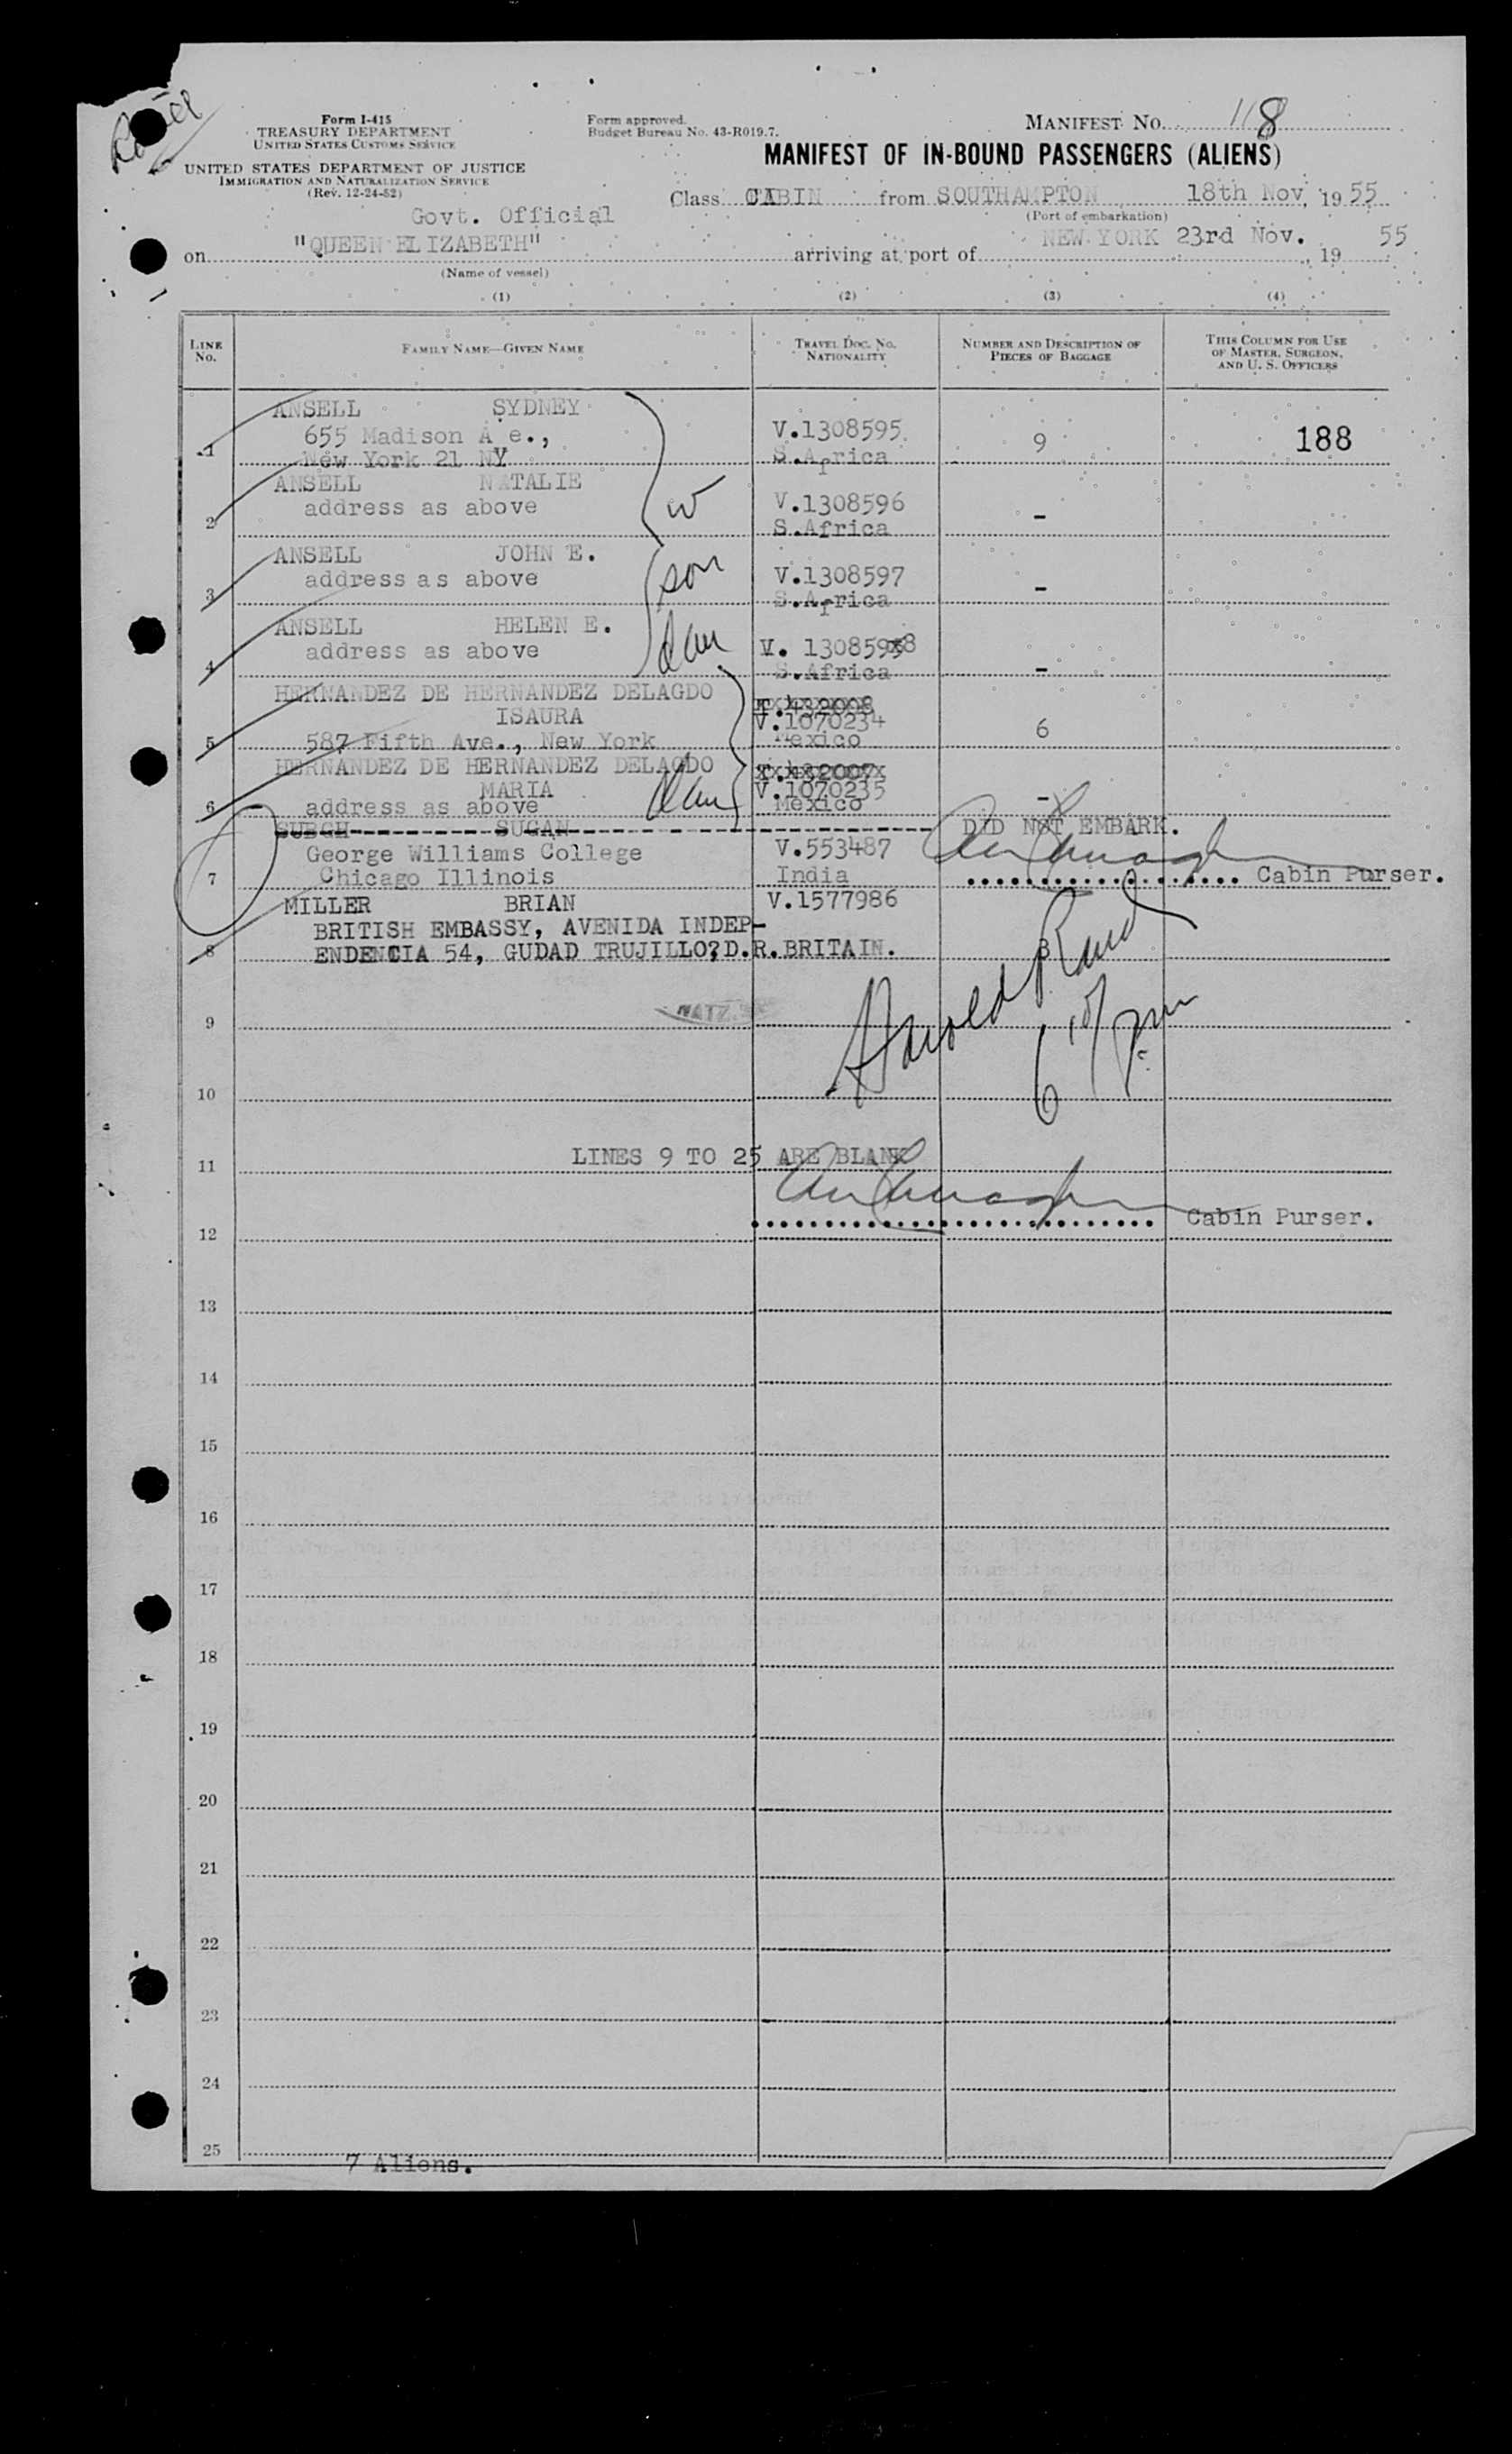 Form I-415
TREASURY DEPARTMENT
UNITED STATES CUSTOMS SERVICE
UNITED STATES DEPARTMENT OF JUSTICE
IMMIGRATION AND NATURALIZATION SERVICE
(Rev. 12-24-52)
Form approved.
Budget Bureau No. 43-R019.7.
MANIFEST NO. 118
MANIFEST OF IN-BOUND PASSENGERS (ALIENS)
Class CABIN from SOUTHAMPTON 18th Nov, 19 55
(Port of embarkation)
Govt. Official
on "QUEEN ELIZABETH" arriving at port of NEW YORK 23rd Nov. 19 55
(Name of vessel)
(1) (2) (3) (4)
LINE No. FAMILY NAME—GIVEN NAME TRAVEL DOC. NO. NATIONALITY NUMBER AND DESCRIPTION OF PIECES OF BAGGAGE THIS COLUMN FOR USE OF MASTER, SURGEON, AND U. S. OFFICERS
ANSELL SYDNEY
655 Madison A e., V.1308595 9 188
1 New York 21 NY S.Africa
ANSELL NATALIE
address as above w V.1308596 -
2 S.Africa
ANSELL JOHN E.
address as above son V.1308597 -
3 S.Africa
ANSELL HELEN E.
address as above dau V. 1308598
4 S.Africa -
HERNANDEZ DE HERNANDEZ DELAGDO T.432008
ISAURA V.1070234 6
5 587 Fifth Ave., New York Mexico
HERNANDEZ DE HERNANDEZ DELAGDO T.432007
MARIA dau V.1070235 -
6 address as above Mexico
SUBGH SUGAN DID NOT EMBARK.
George Williams College V.553487
7 Chicago Illinois India Cabin Purser.
MILLER BRIAN V.1577986
BRITISH EMBASSY, AVENIDA INDEP-
8 ENDENCIA 54, GUDAD TRUJILLO?D.R. BRITAIN. 3
Harold Rand
6 15/ pm
NATZ.
9
10
LINES 9 TO 25 ARE BLANK
11
Cabin Purser.
12
13
14
15
16
17
18
19
20
21
22
23
24
25
7 Aliens.